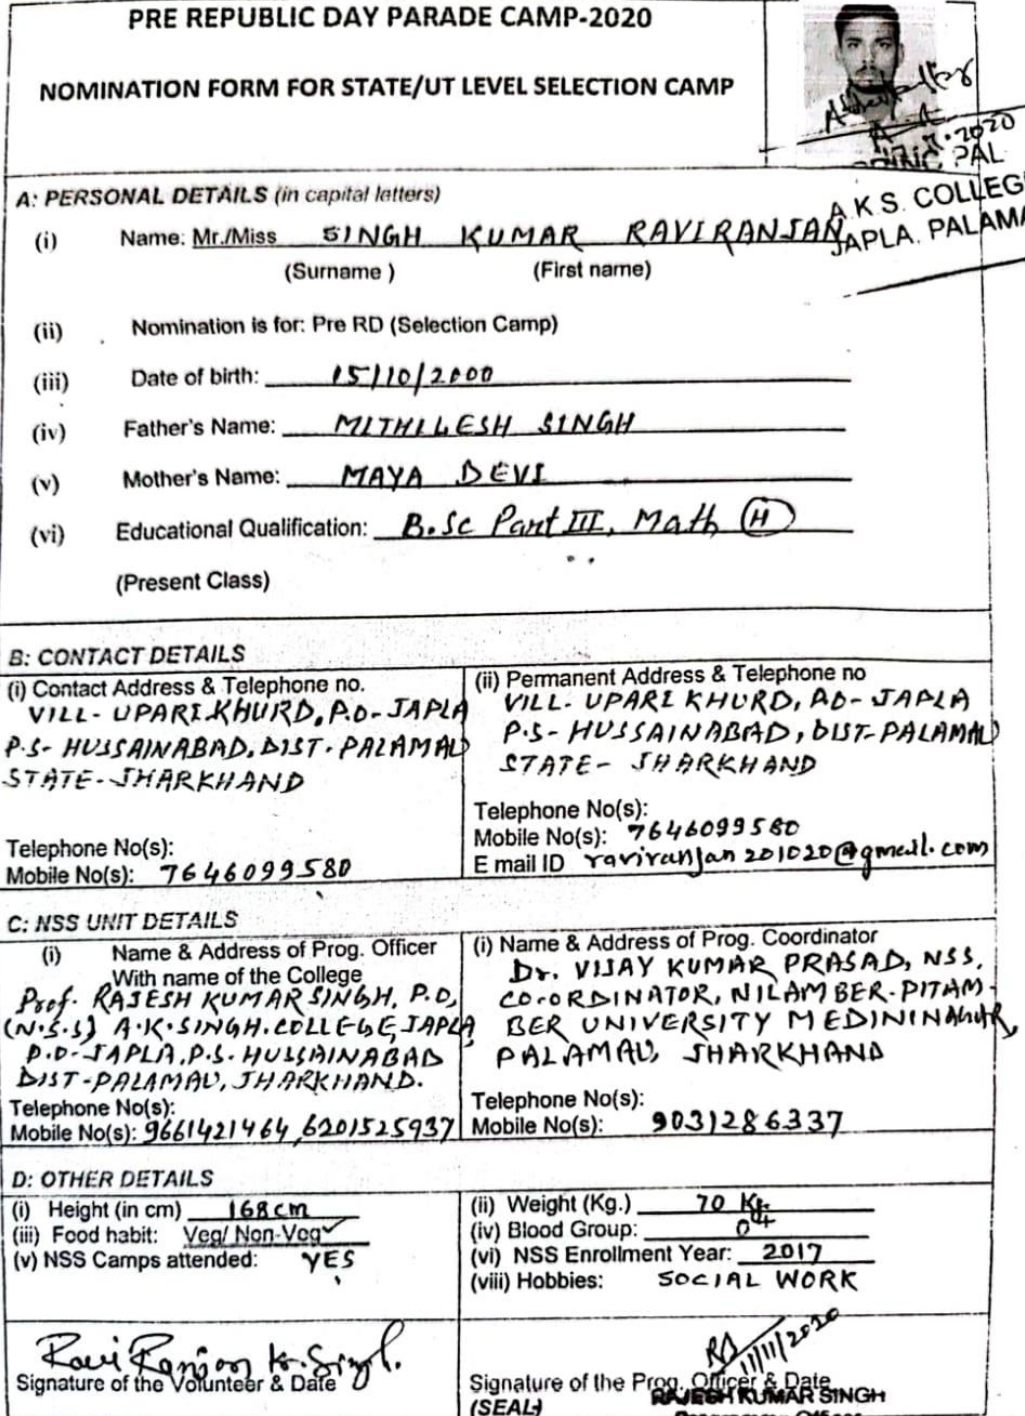 PRE REPUBLIC DAY PARADE CAMP-2020
NOMINATION FORM FOR STATE/UT LEVEL SELECTION CAMP
A.K.S. COLLEGE
JAPLA, PALAMA
A: PERSONAL DETAILS (in capital letters)
(i) Name: Mr./Miss SINGH KUMAR RAVIRANJAN
(Surname ) (First name)
(ii) Nomination is for: Pre RD (Selection Camp)
(iii) Date of birth: 15/10/2000
(iv) Father's Name: MITHILESH SINGH
(v) Mother's Name: MAYA DEVI
(vi) Educational Qualification: B.Sc Part III, Math (H)
(Present Class)
B: CONTACT DETAILS
(i) Contact Address & Telephone no.
VILL- UPARI KHURD, P.O- JAPLA
P.S- HUSSAINABAD, DIST- PALAMAU
STATE- JHARKHAND
Telephone No(s):
Mobile No(s): 7646099580
(ii) Permanent Address & Telephone no
VILL- UPARI KHURD, PO- JAPLA
P.S- HUSSAINABAD, DIST-PALAMAU
STATE- JHARKHAND
Telephone No(s):
Mobile No(s): 7646099580
E mail ID raviranjan201020@gmail.com
C: NSS UNIT DETAILS
(i) Name & Address of Prog. Officer
With name of the College
Prof. RAJESH KUMAR SINGH, P.O,
(N.S.S) A.K.SINGH.COLLEGE, JAPLA
P.O-JAPLA, P.S. HUSSAINABAD
DIST-PALAMAU, JHARKHAND.
Telephone No(s):
Mobile No(s): 9661421464, 6201525937
(i) Name & Address of Prog. Coordinator
Dr. VIJAY KUMAR PRASAD, NSS,
CO-ORDINATOR, NILAMBER-PITAM-
BER UNIVERSITY MEDININAGUR,
PALAMAU, JHARKHAND
Telephone No(s):
Mobile No(s): 9031286337
D: OTHER DETAILS
(i) Height (in cm) 168cm
(iii) Food habit: Veg/ Non-Veg ✓
(v) NSS Camps attended: YES
(ii) Weight (Kg.) 70 Kg
(iv) Blood Group: O+
(vi) NSS Enrollment Year: 2017
(viii) Hobbies: SOCIAL WORK
Ravi Ranjan Kr. Singh.
Signature of the Volunteer & Date
11/11/2020
Signature of the Prog. Officer & Date
RAJESH KUMAR SINGH
(SEAL)